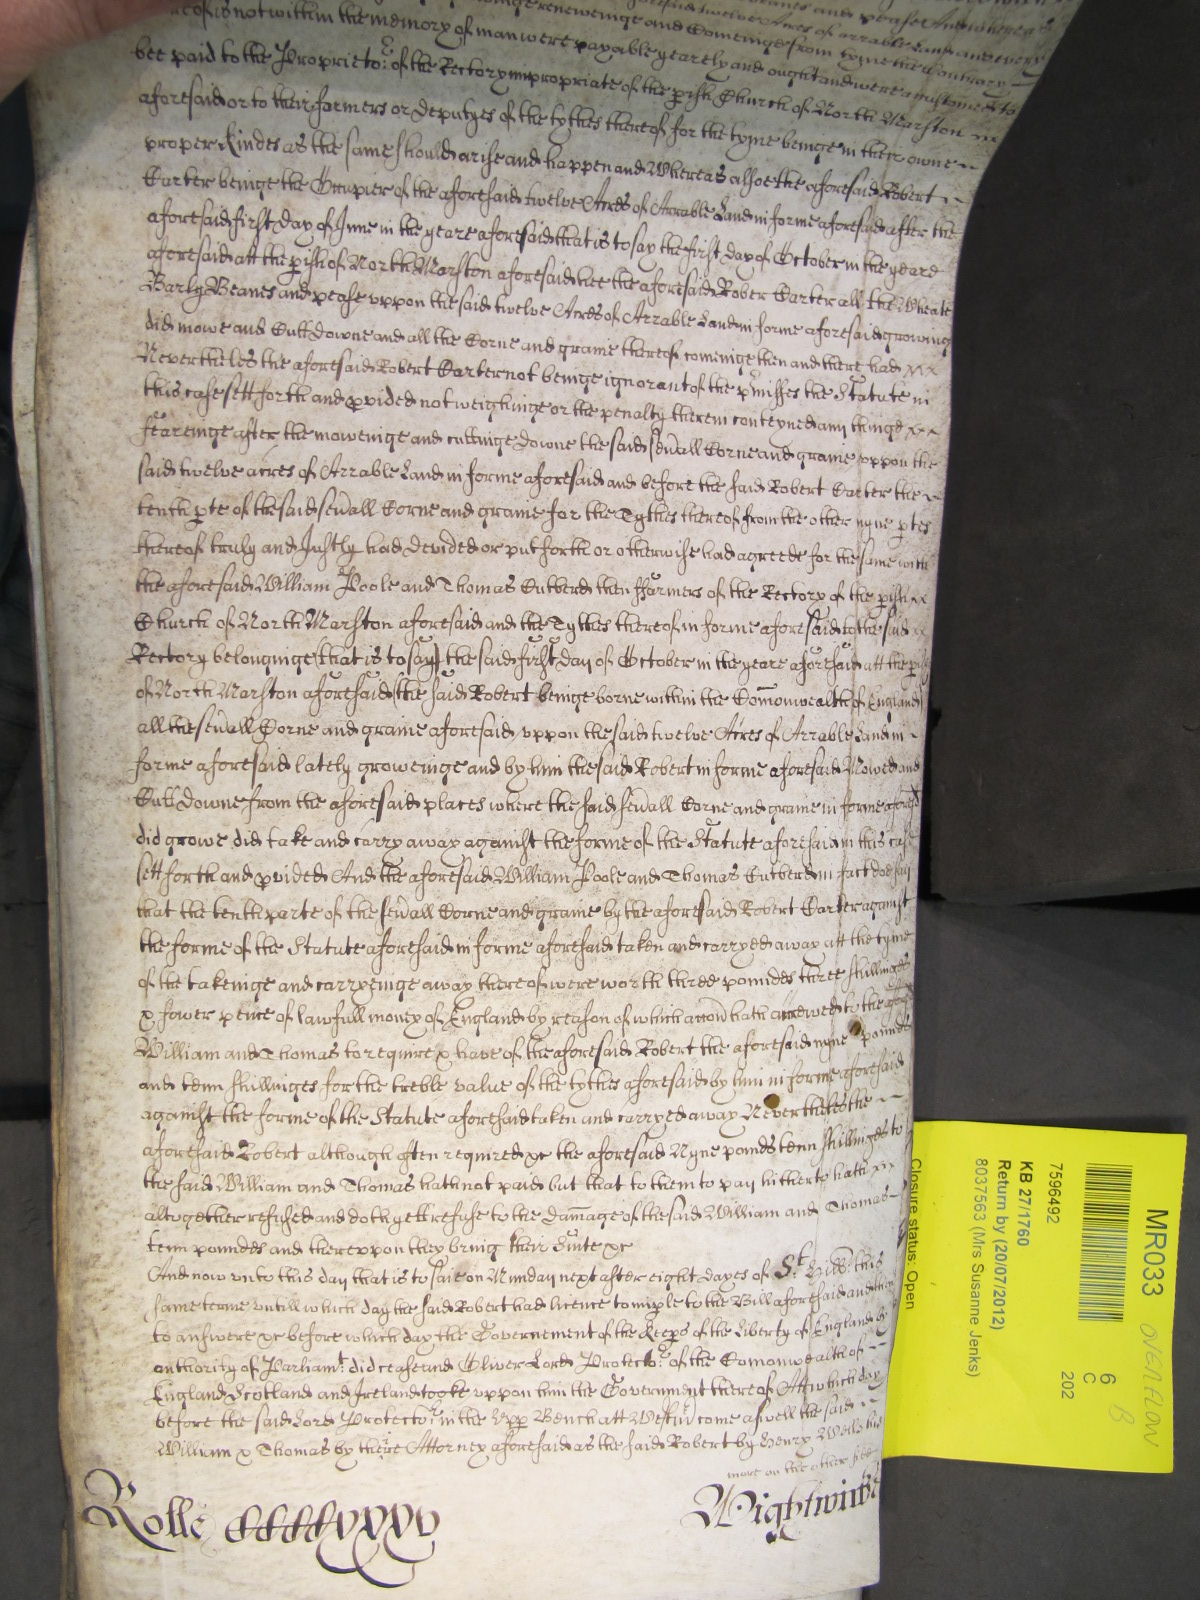 renewinge and Comeinge from tyme the Contrary
not within the memory of man were payable yearely and ought and were accustomed to
bee paid to the Proprieto.r of the Rectory impropriate of the pish Church of North Marston
aforesaid or to their farmers or deputyes of the tythes thereof for the tyme beinge in their owne
proper kindes as the same should arise and happen and Whereas alsoe the aforesaid Robert
Carter beinge the Occupier of the aforesaid twelve Acres of Arrable Land in forme aforesaid after the
aforesaid first day of June in the yeare aforesaid that is to say the first day of October in the yeare
aforesaid att the pish of North Marston aforesaid hee the aforesaid Rober Carter all the Wheate
Barly Beanes and pease uppon the said twelve Acres of Arrable Land in forme aforesaid growing
did mowe and Cutt downe and all the Corne and graine thereof comeinge then and there had
Neverthelesse the aforesaid Robert Carter not beinge ignorant of the pmisses the Statute in
this case sett forth and pvided not weighinge or the penalty therein conteyned any thinge
feareinge after the moweinge and cuttinge downe the said sevall Corne and graine uppon the
said twelve acres of Arrable Land in forme aforesaid and before the said Robert Carter the
tenth pte of the said sevall Corne and graine for the Tythes thereof from the other nyne ptes
thereof truly and Justly had devided or put forth or otherwise had agreede for the same with
the aforesaid William Poole and Thomas Cutberd then ffarmers of the Rectory of the pish
Church of North Marston aforesaid and the Tythes thereof in forme aforesaid to the said
Rectory belonginge (that is to say) the said first day of October in the yeare aforesaid att the pish
of North Marston aforesaid (the said Robert beinge borne within the Comonwealth of England)
all the sevall Corne and graine aforesaid uppon the said twelve Acres of Arrable Land in
forme aforesaid lately groweinge and by him the said Robert in forme aforesaid Mowed and
Cutt downe from the aforesaid places where the said sevall Corne and graine in forme aforesd
did growe did take and carry away against the forme of the Statute aforesaid in this case
sett forth and pvided And the aforesaid William Poole and Thomas Cutberd in fact doe say
that the tenth parte of the sevall Corne and graine by the aforesaid Robert Carter against
the forme of the Statute aforesaid in forme aforesaid taken and carryed away att the tyme
of the takeinge and carryeinge away thereof were worth three poundes three shillinges
& fower pence of lawfull money of England by reason of which accon hath accrewed to the aforesd
William and Thomas to require & have of the aforesaid Robert the aforesaid nyne pounds
and tenn shillinges for the treble value of the tythes aforesaid by him in forme aforesaid
against the forme of the Statute aforesaid taken and carryed away Neverthelesse the
aforesaid Robert although often required &c the aforesaid Nyne pounds tenn shillinges to
the said William and Thomas hath not paid but that to them to pay hitherto hath
altogether refused and doth yett refuse to the damage of the said William and Thomas
tenn poundes and thereuppon they bring their Suite &c
And now unto this day that is to saie on Munday next after eight dayes of St. Hill this
same terme untill which day the said Robert had licence to imple to the Bill aforesaid and then
to answere &c before which day the Governement of the Keeps of the Liberty of England by
authority of Parliamt. did cease and Oliver Lord Protecto.r of the Comonwealth of
England Scotland and Ireland tooke uppon him the Government thereof Att which day
before the said Lord Protecto.r in the Upp Bench att Westm come aswell the said
William & Thomas by there Attorney aforesaid as the said Robert by Henry Wells his
more on the other side
Rolle CCCCCXXXV
Wightwicke
Closure status: Open
8037563 (Mrs Susanne Jenks)
Return by (20/07/2012)
KB 27/1760
7596492
MR033
6
C
202
OVERFLOW
B